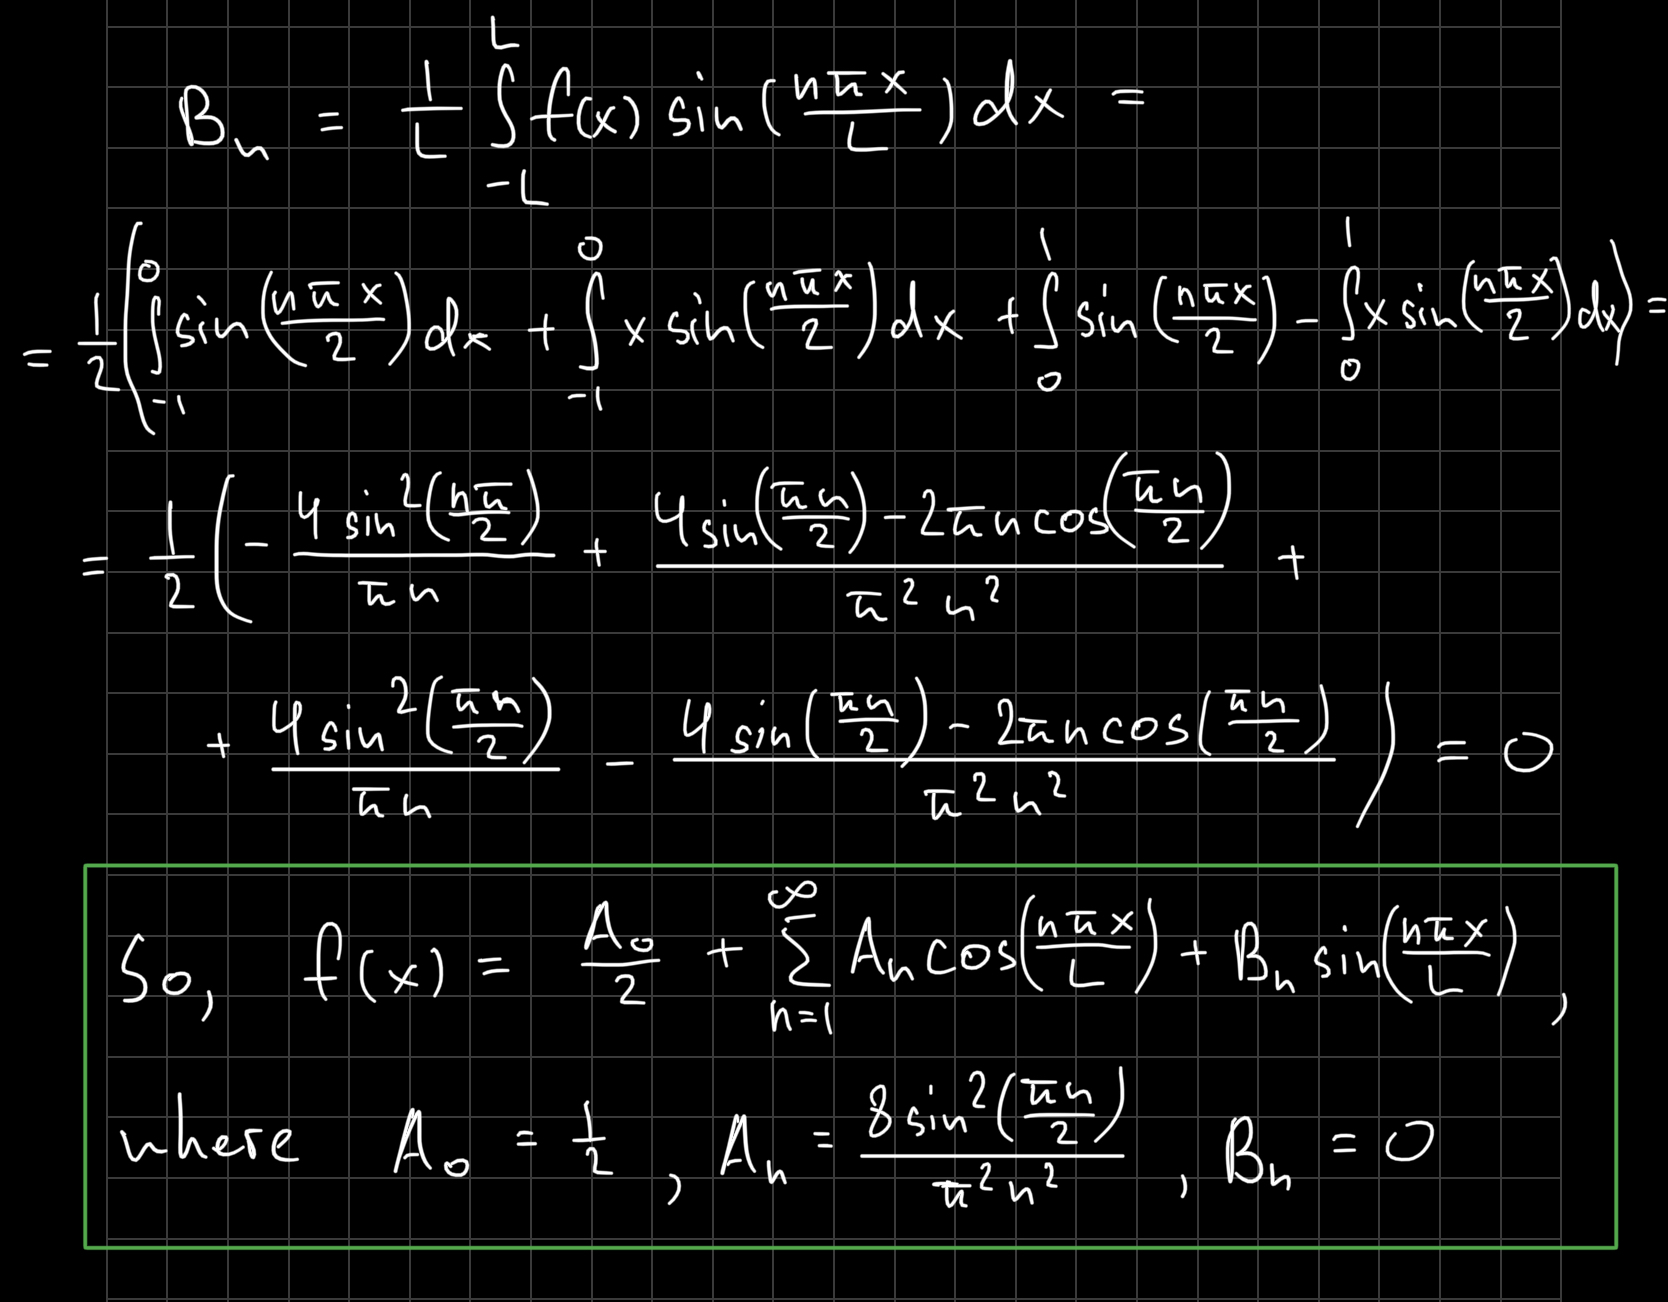 Bₙ = 1/L ∫_{-L}^{L} f(x) sin(nπx/L) dx =
= 1/2 (∫_{-1}^{0} sin(nπx/2) dx + ∫_{-1}^{0} x sin(nπx/2) dx + ∫_{0}^{1} sin(nπx/2) - ∫_{0}^{1} x sin(nπx/2) dx) =
= 1/2 (- 4 sin²(nπ/2)/πn + (4 sin(πn/2) - 2πn cos(πn/2))/π²n² +
+ 4 sin²(πn/2)/πn - (4 sin(πn/2) - 2πn cos(πn/2))/π²n²) = 0
So, f(x) = A₀/2 + ∑_{n=1}^{∞} Aₙ cos(nπx/L) + Bₙ sin(nπx/L),
where A₀ = 1/2, Aₙ = 8 sin²(πn/2)/π²n², Bₙ = 0